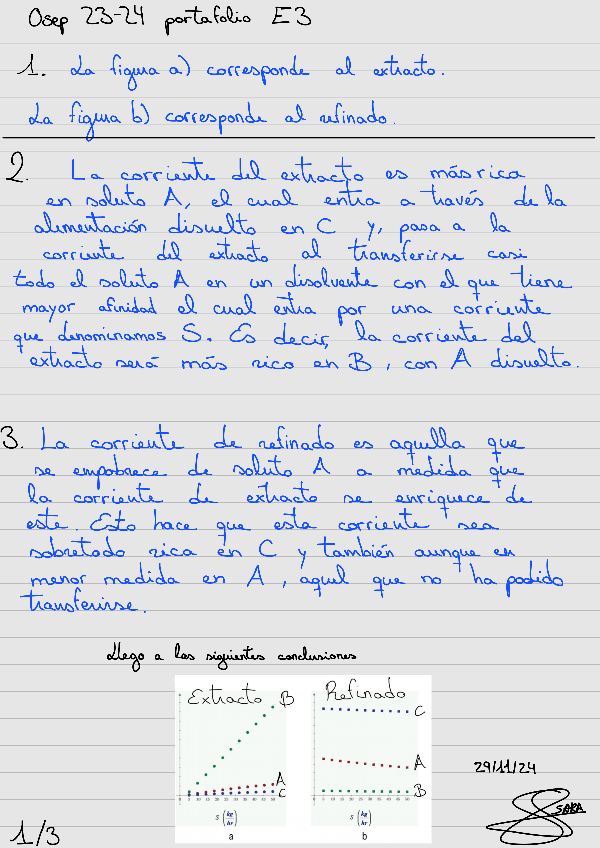 Osep 23-24 portafolio E3
1. La figura a) corresponde al extracto.
La figura b) corresponde al refinado.
2. La corriente del extracto es más rica
en soluto A, el cual entra a través de la
alimentación disuelto en C y, pasa a la
corriente del extracto al transferirse casi
todo el soluto A en un disolvente con el que tiene
mayor afinidad el cual entra por una corriente
que denominamos S. Es decir, la corriente del
extracto será más rico en B, con A disuelto.
3. La corriente de refinado es aquella que
se empobrece de soluto A a medida que
la corriente de extracto se enriquece de
este. Esto hace que esta corriente sea
sobretodo rica en C y también aunque en
menor medida en A, aquel que no ha podido
transferirse.
Llego a las siguientes conclusiones
Extracto B
A
C
0 5 10 15 20 25 30 35 40 45 50
S (kg/hr)
a
Refinado
C
A
B
0 5 10 15 20 25 30 35 40 45 50
S (kg/hr)
b
29/11/24
SARA
1/3